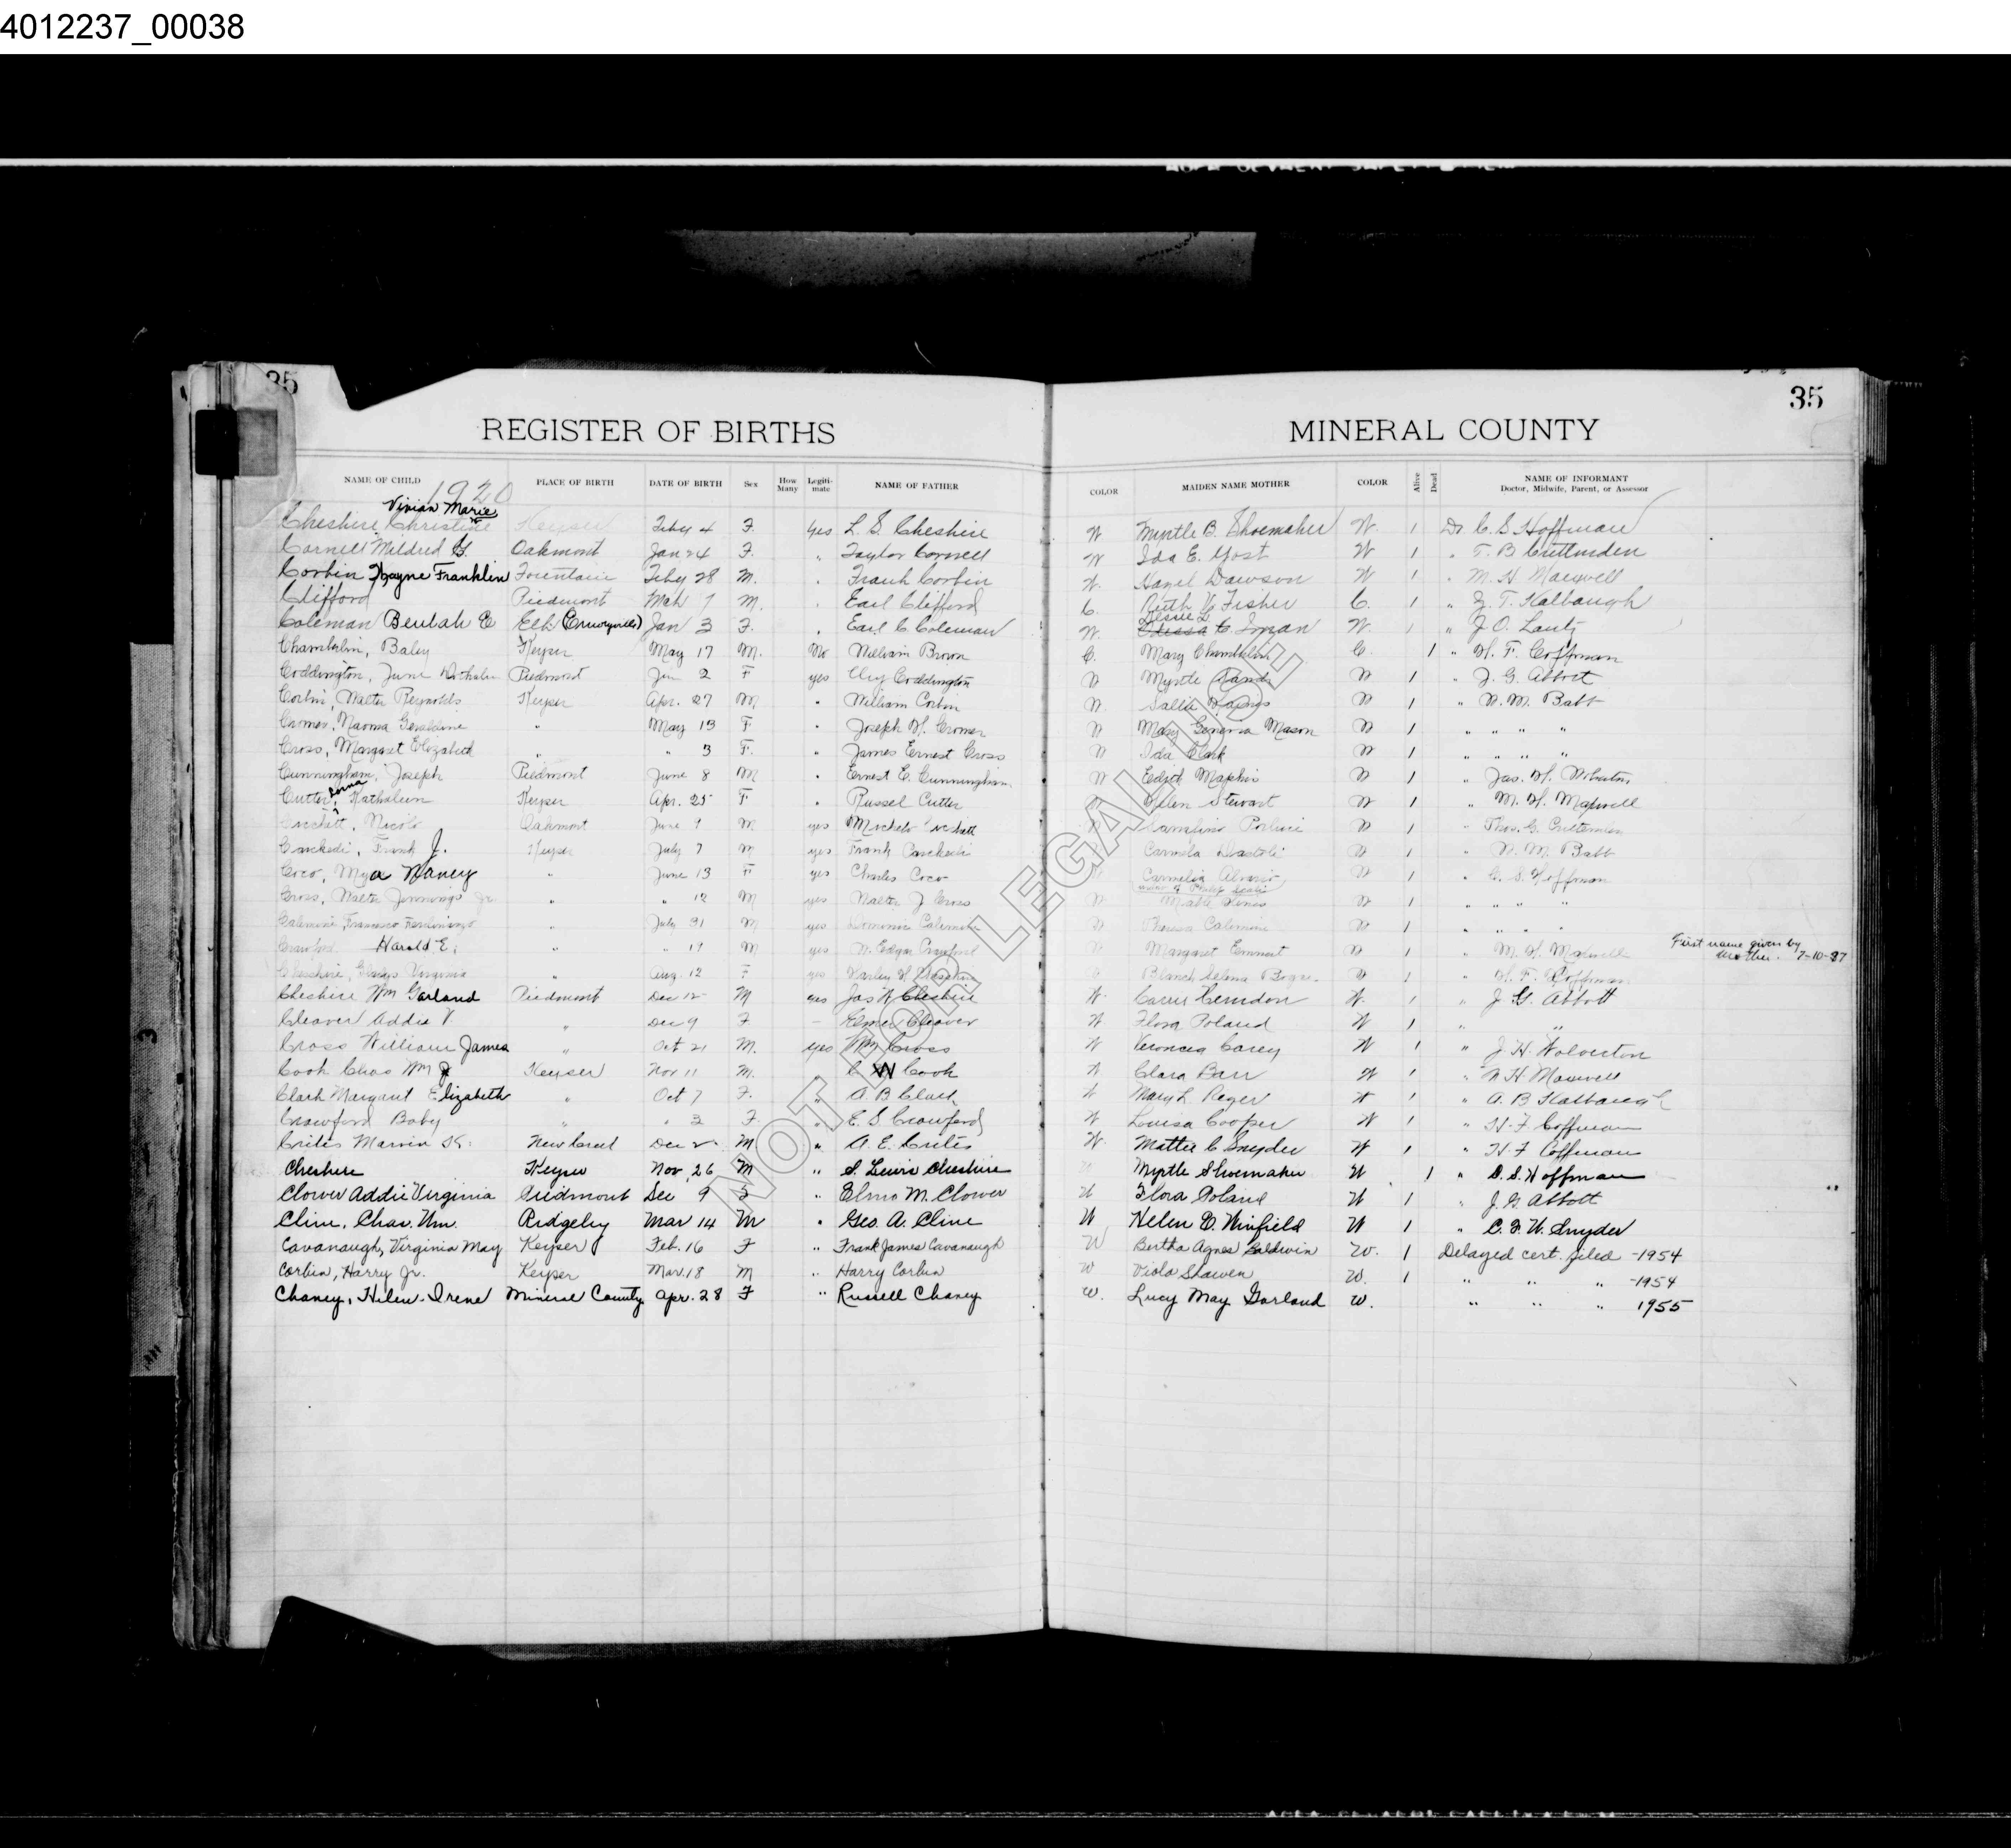 4012237_00038
35 35
REGISTER OF BIRTHS MINERAL COUNTY
NAME OF CHILD PLACE OF BIRTH DATE OF BIRTH Sex How Many Legiti-mate NAME OF FATHER COLOR MAIDEN NAME MOTHER COLOR Alive Dead NAME OF INFORMANT
Doctor, Midwife, Parent, or Assessor
1920
Vivian Marie
Cheshire, Christine Keyser Feby 4 F. Yes L. S. Cheshire W Myrtle B. Shoemaker W. 1 Dr. C. S. Hoffman
Cornell Mildred G. Oakmont Jan 24 F. " Taylor Cornell W Ida E. Yost W 1 " T. B. Crittenden
Corbin Wayne Franklin Fountain Feby 28 M. " Frank Corbin W. Hazel Dawson W 1 " M. H. Maxwell
Clifford Piedmont Mch 7 M. " Earl Clifford C. Ruth V. Fisher C. 1 " Z. T. Kalbaugh
Dessie L.
Coleman Beulah E Elk (Emoryville) Jan 3 F. " Earl C. Coleman W. Odessa C. Inman W. 1 " J. O. Lantz
Chamberlin, Baley Keyser May 17 M. No William Brown C. Mary Chamberlin C. 1 " H. F. Coffman
Coddington, June Piedmont Jun 2 F yes Coddington W Myrtle W 1 " J. G. Abbott
Corbin, Walter Reynolds Keyser Apr. 27 M " William Corbin W. Sallie W 1 " W. M. Babb
Cromer, Naoma Geraldine " May 13 F " Joseph H. Cromer W Mary Geneva Mason W 1 " " " "
Cross, Margaret Elizabeth " " 3 F. " James Ernest Cross W Ida Clark W 1 " " " "
Cunningham, Joseph Piedmont June 8 M " Ernest E. Cunningham W Edith W 1 " Jas. H. Wolverton
Cutter, Kathaleen Keyser Apr. 25 F " Russel Cutter W Helen Stewart W 1 " M. H. Maxwell
Nicolo Oakmont June 9 M yes W 1 " Thos. B. Crittenden
Caschedi, Frank J. Keyser July 7 M yes Frank Caschedi W Carmela W 1 " W. M. Babb
Coco, Mya Nancy " June 13 F yes Charles Coco W 1 " C. S. Hoffman
Cross, Walter Jennings Jr. " " 12 M yes Walter J Cross W Mable W 1 " " " "
Calemine, Francesco " July 31 M yes Dominic Calemine W Theresa Calemine W 1 " " " "
Crawford Harold E. " " 19 M yes W. Edgar Crawford W Margaret Emmert W 1 " M. H. Maxwell First name given by
mother. 7-10-37
Cheshire, Gladys Virginia " Aug. 12 F yes Blanch W 1 " H. F. Coffman
Cheshire Wm Garland Piedmont Dec 12 M yes Jas W Cheshire W. Carrie Herndon W. 1 " J. G. Abbott
Cleaver Addie V. " Dec 9 F. – Elmer Cleaver W Flora Poland W 1 " "
Cross William James " Oct 21 M. yes Wm Cross W Veronica Carey W 1 " J. H. Wolverton
Cook Chas Wm Jr Keyser Nov 11 M. " C W Cook W Clara Barr W 1 " M H Maxwell
Clark Margaret Elizabeth " Oct 7 F. " A B Clark W Mary L. Reger W 1 " A. B Kalbaugh
Crawford Baby " " 3 F. " E. S. Crawford W Louisa Cooper W 1 " H. F. Coffman
Crites Marvin K. New Creek Dec 2 M " A. E. Crites W Mattie C Snyder W 1 " H. F Coffman
Cheshire Keyser Nov. 26 M " S. Lewis Cheshire Myrtle Shoemaker W 1 " C. S. Hoffman
Clower Addie Virginia Piedmont Dec 9 F " Elmo M. Clower W Flora Poland W 1 " J. G. Abbott
Cline, Chas. Wm. Ridgeley Mar 14 M " Geo. A. Cline W Helen D. Winfield W 1 " C. F. W. Snyder
Cavanaugh, Virginia May Keyser Feb. 16 F " Frank James Cavanaugh W Bertha Agnes Baldwin W. 1 Delayed cert. filed - 1954
Corbin, Harry Jr. Keyser Mar. 18 M " Harry Corbin W Viola Shawen W. 1 " " " - 1954
Chaney, Helen Irene Mineral County Apr. 28 F " Russell Chaney W. Lucy May Garland W. " " " 1955
NOT FOR LEGAL USE